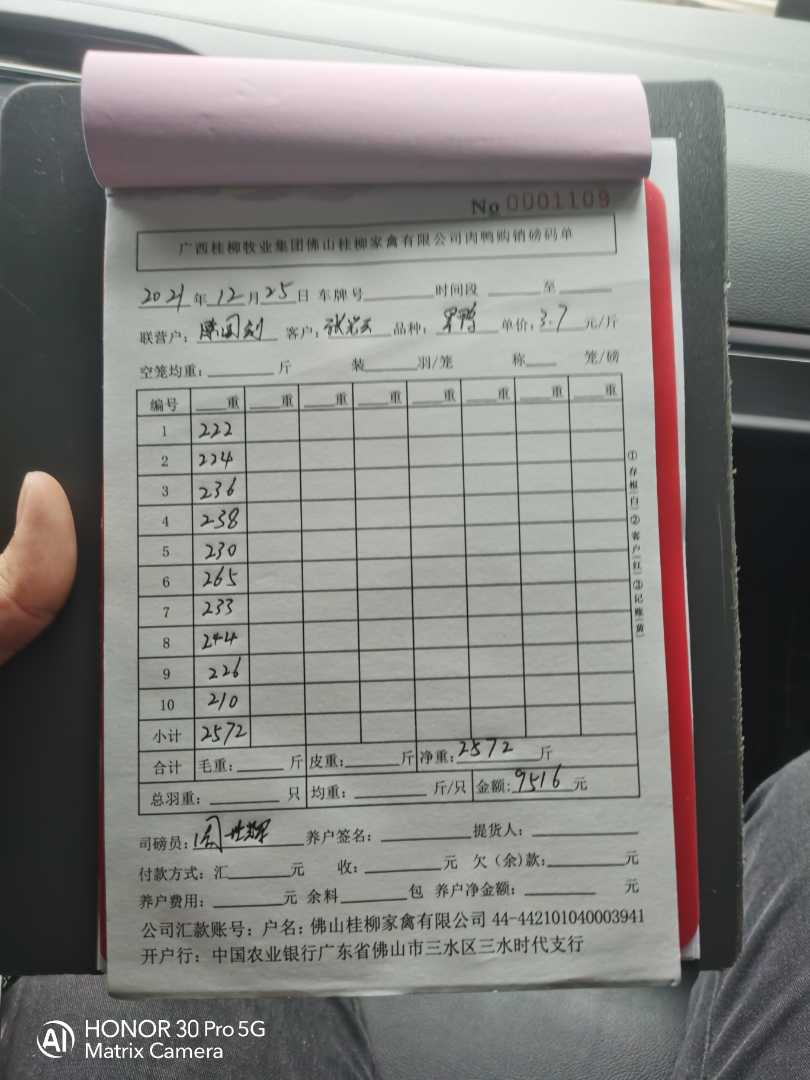 No 0001109
广西桂柳牧业集团佛山桂柳家禽有限公司肉鸭购销磅码单
2021年12月25日 车牌号 时间段 至
联营户: 客户: 张 品种: 鸭 单价: 3.7 元/斤
空笼均重: 斤 装 羽/笼 称 笼/磅
编号 重 重 重 重 重 重 重 重
1 222
2 224
3 236
4 238
5 230
6 265
7 233
8 244
9 226
10 210
小计 2572
合计 毛重: 斤 皮重: 斤 净重: 2572 斤
总羽重: 只 均重: 斤/只 金额: 9516 元
司磅员: 周世辉 养户签名: 提货人:
付款方式: 汇 元 收: 元 欠（余）款: 元
养户费用: 元 余料 包 养户净金额: 元
公司汇款账号: 户名: 佛山桂柳家禽有限公司 44-442101040003941
开户行: 中国农业银行广东省佛山市三水区三水时代支行
①存根(白)②客户(红)③记账(黄)
HONOR 30 Pro 5G
AI Matrix Camera